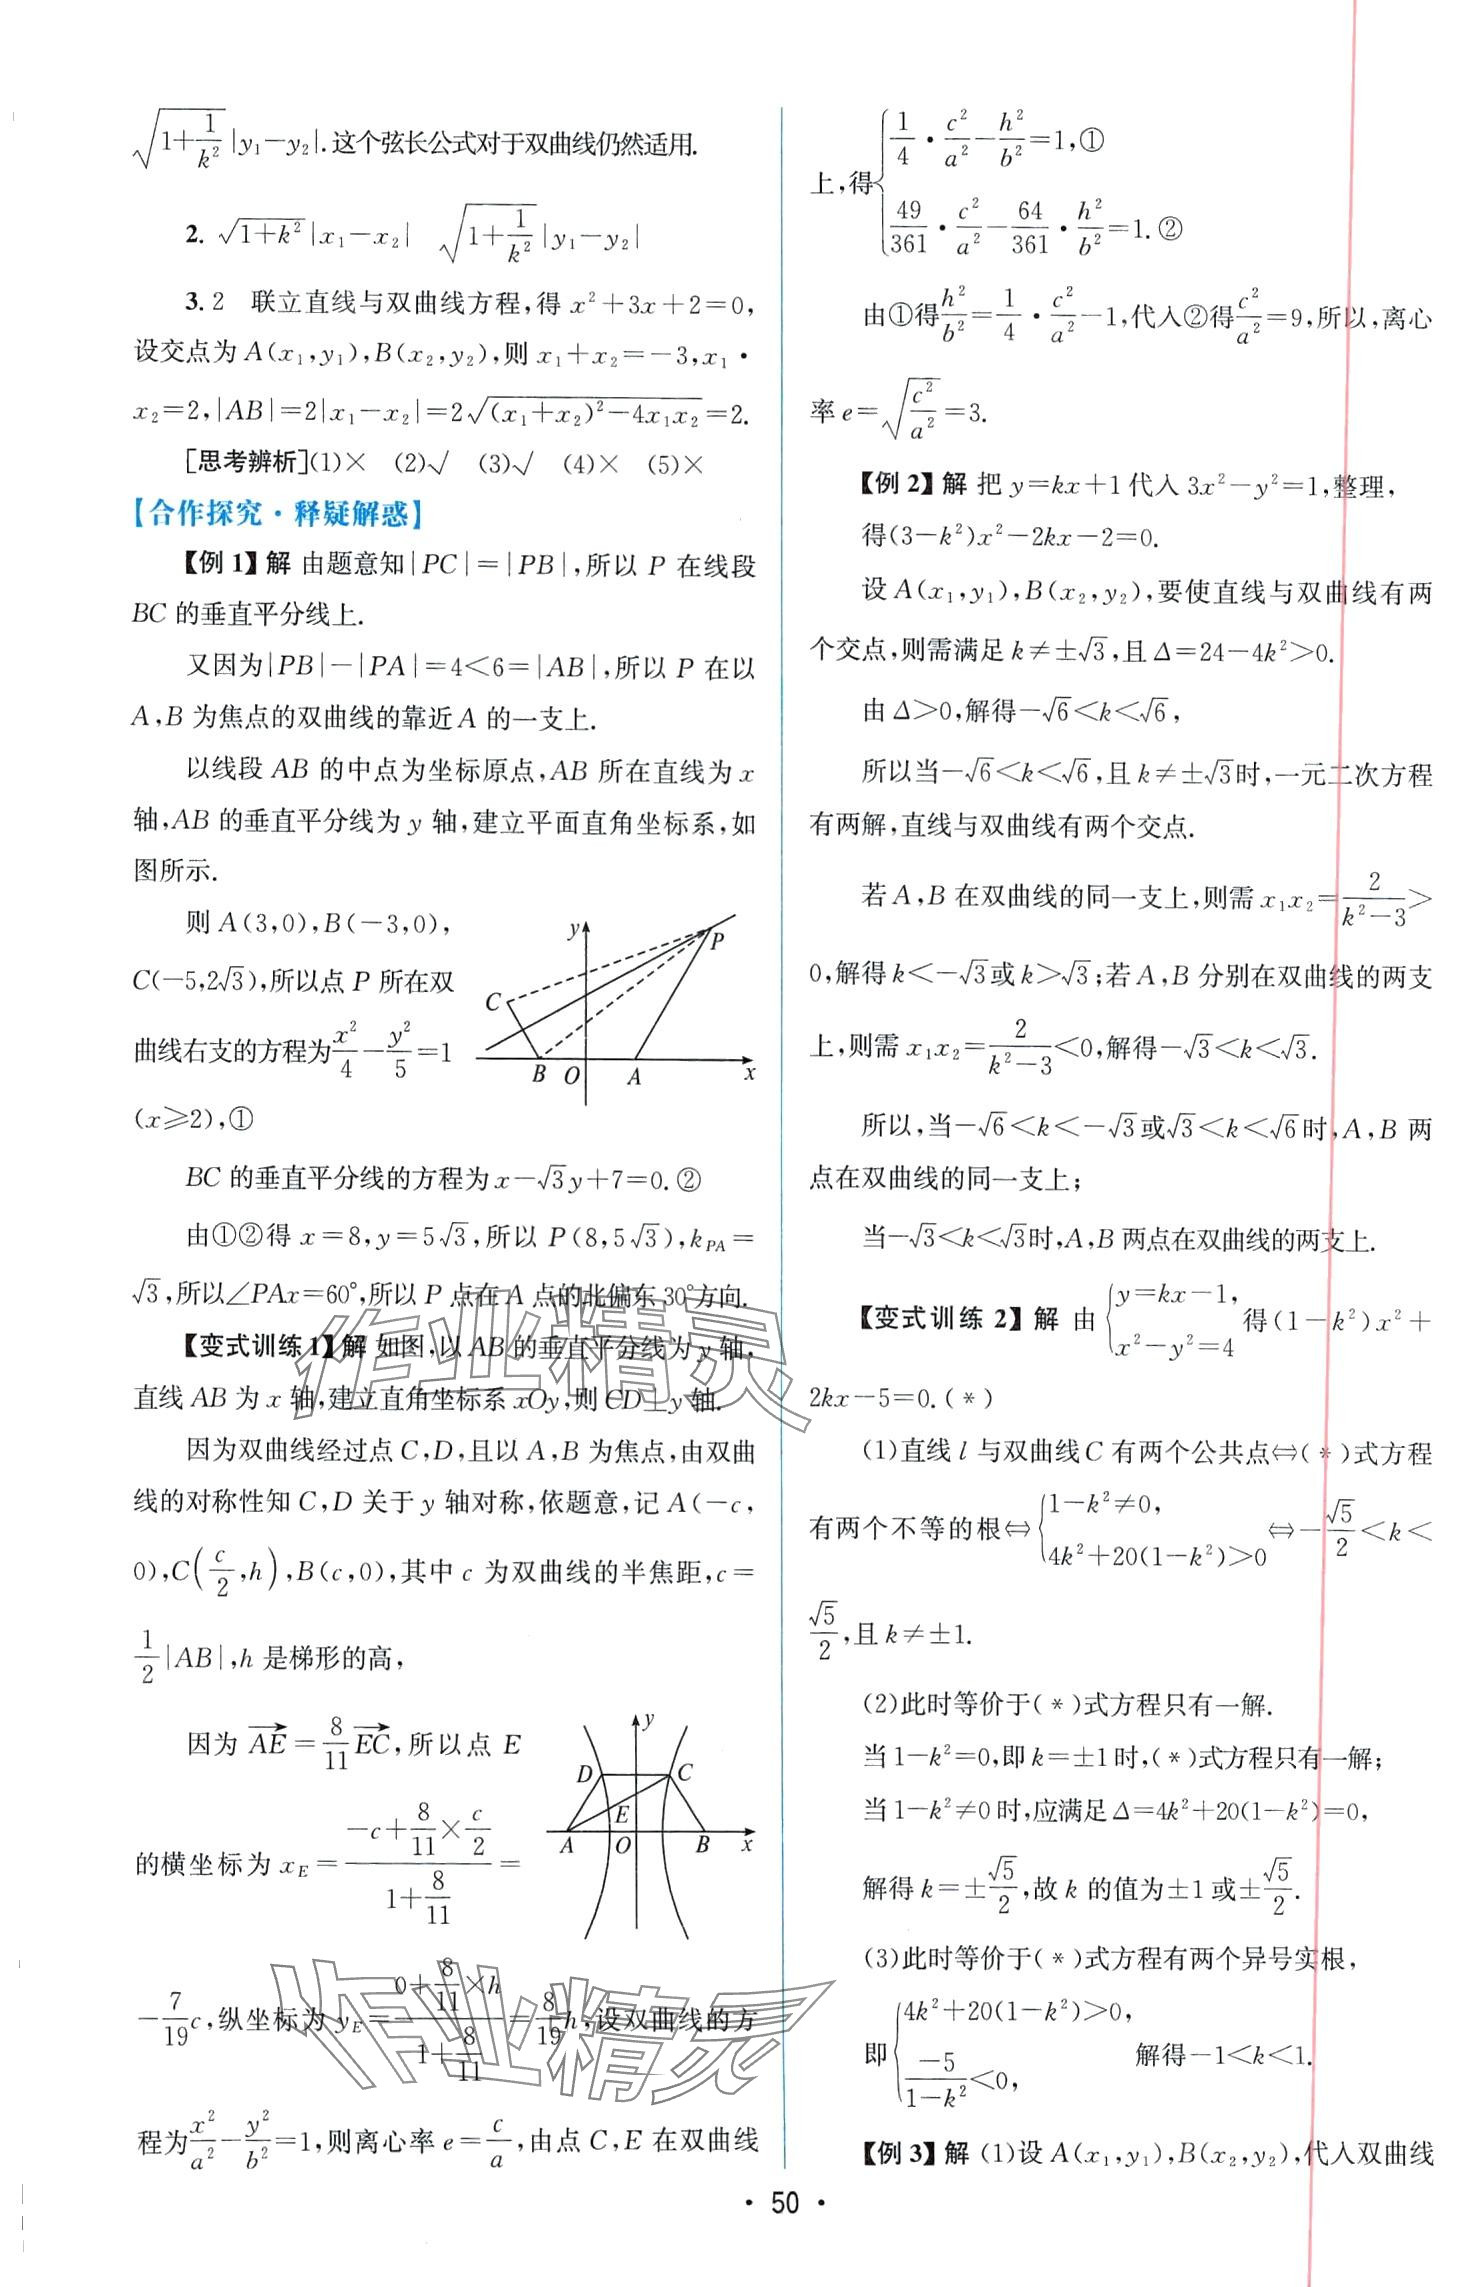 √(1+1/k²)|y₁-y₂|.这个弦长公式对于双曲线仍然适用.
2. √(1+k²)|x₁-x₂| √(1+1/k²)|y₁-y₂|
3. 2 联立直线与双曲线方程,得 x²+3x+2=0,
设交点为 A(x₁,y₁),B(x₂,y₂),则 x₁+x₂=-3,x₁·
x₂=2,|AB|=2|x₁-x₂|=2√((x₁+x₂)²-4x₁x₂)=2.
[思考辨析](1)× (2)√ (3)√ (4)× (5)×
【合作探究·释疑解惑】
【例 1】解 由题意知|PC|=|PB|,所以 P 在线段
BC 的垂直平分线上.
又因为|PB|-|PA|=4<6=|AB|,所以 P 在以
A,B 为焦点的双曲线的靠近 A 的一支上.
以线段 AB 的中点为坐标原点,AB 所在直线为 x
轴,AB 的垂直平分线为 y 轴,建立平面直角坐标系,如
图所示.
则 A(3,0),B(-3,0),
C(-5,2√3),所以点 P 所在双
曲线右支的方程为x²/4-y²/5=1
(x≥2),①
y
P
C
B O A x
BC 的垂直平分线的方程为 x-√3y+7=0.②
由①②得 x=8,y=5√3,所以 P(8,5√3),k_PA=
√3,所以∠PAx=60°,所以 P 点在 A 点的北偏东 30°方向.
【变式训练 1】解 如图,以 AB 的垂直平分线为 y 轴,
直线 AB 为 x 轴,建立直角坐标系 xOy,则 CD⊥y 轴.
因为双曲线经过点 C,D,且以 A,B 为焦点,由双曲
线的对称性知 C,D 关于 y 轴对称,依题意,记 A(-c,
0),C(c/2,h),B(c,0),其中 c 为双曲线的半焦距,c=
1/2|AB|,h 是梯形的高,
因为 AE→=8/11 EC→,所以点 E
的横坐标为 x_E=(-c+8/11×c/2)/(1+8/11)=
y
D C
E
A O B x
-7/19c,纵坐标为 y_E=(0+8/11×h)/(1+8/11)=8/19h,设双曲线的方
程为x²/a²-y²/b²=1,则离心率 e=c/a,由点 C,E 在双曲线
上,得{1/4·c²/a²-h²/b²=1,①
49/361·c²/a²-64/361·h²/b²=1.②
由①得h²/b²=1/4·c²/a²-1,代入②得c²/a²=9,所以,离心
率 e=√(c²/a²)=3.
【例 2】解 把 y=kx+1 代入 3x²-y²=1,整理,
得(3-k²)x²-2kx-2=0.
设 A(x₁,y₁),B(x₂,y₂),要使直线与双曲线有两
个交点,则需满足 k≠±√3,且 Δ=24-4k²>0.
由 Δ>0,解得-√6<k<√6,
所以当-√6<k<√6,且 k≠±√3时,一元二次方程
有两解,直线与双曲线有两个交点.
若 A,B 在双曲线的同一支上,则需 x₁x₂=2/(k²-3)>
0,解得 k<-√3或 k>√3;若 A,B 分别在双曲线的两支
上,则需 x₁x₂=2/(k²-3)<0,解得-√3<k<√3.
所以,当-√6<k<-√3或√3<k<√6时,A,B 两
点在双曲线的同一支上;
当-√3<k<√3时,A,B 两点在双曲线的两支上.
【变式训练 2】解 由{y=kx-1, x²-y²=4 得(1-k²)x²+
2kx-5=0.(*)
(1)直线 l 与双曲线 C 有两个公共点⇔(*)式方程
有两个不等的根⇔{1-k²≠0, 4k²+20(1-k²)>0 ⇔-√5/2<k<
√5/2,且 k≠±1.
(2)此时等价于(*)式方程只有一解.
当 1-k²=0,即 k=±1 时,(*)式方程只有一解;
当 1-k²≠0 时,应满足 Δ=4k²+20(1-k²)=0,
解得 k=±√5/2,故 k 的值为±1 或±√5/2.
(3)此时等价于(*)式方程有两个异号实根,
即{4k²+20(1-k²)>0, -5/(1-k²)<0, 解得-1<k<1.
【例 3】解 (1)设 A(x₁,y₁),B(x₂,y₂),代入双曲线
· 50 ·
作业精灵
作业精灵